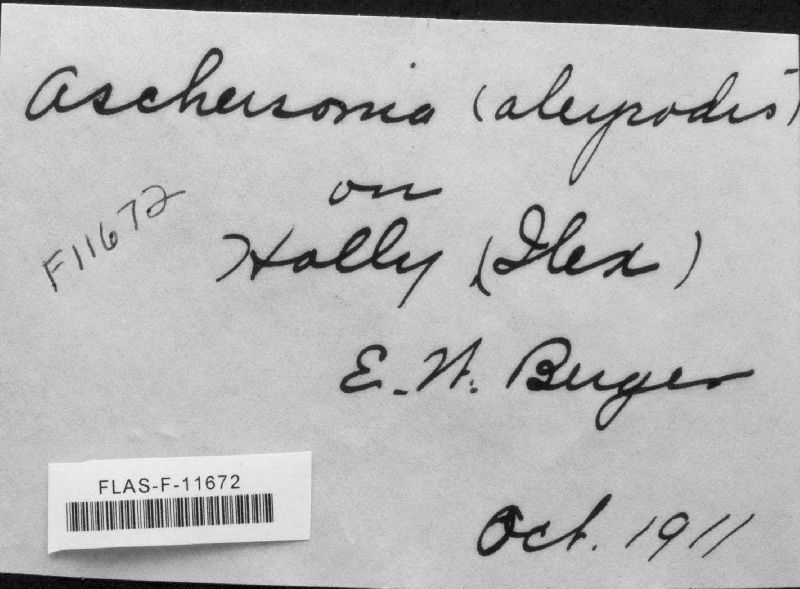 Aschersonia (aleyrodis)
on
F11672
Holly (Ilex)
E. W. Berger
FLAS-F-11672
Oct. 1911